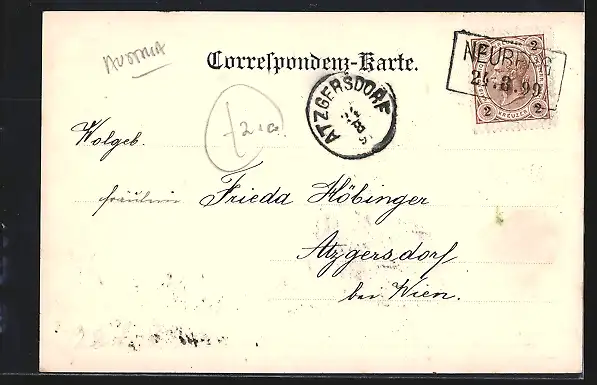 AUSTRIA
Correspondenz-Karte.
2
NEUR
24.8.99
2 2
KREUZER
ATZGERSDORF
24
8
9
Wolgeb.
Fräulein Frieda Köbinger
Atzgersdorf
bei Wien.